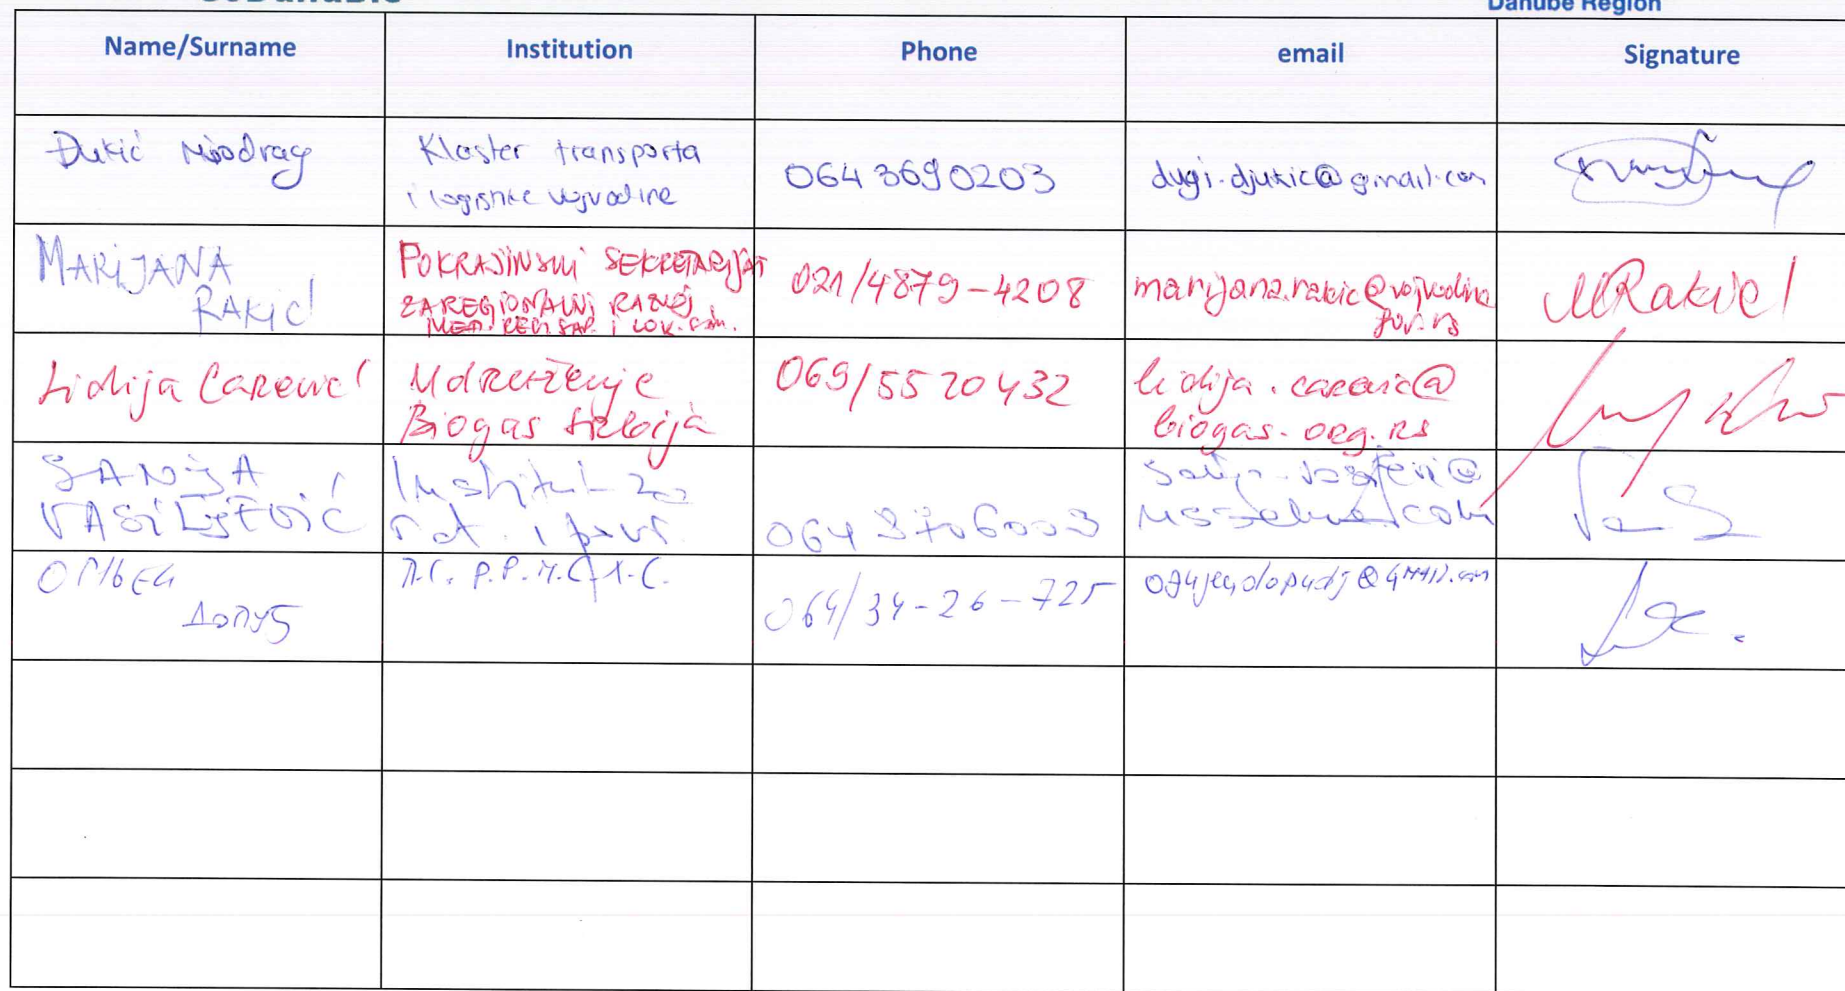 Danube Region
Name/Surname Institution Phone email Signature
Đukić Miodrag
Klaster transporta
i logistike vojvodine
0643690203
dugi.djukic@gmail.com
MARIJANA
RAKIĆ
POKRAJINSKI SEKRETARIJAT
ZA REGIONALNI RAZVOJ
MEĐ. REG. SAR. I LOK. SAM.
021/4879-4208
marijana.rakic@vojvodina
gov.rs
MRakić
Lidija Carević
Udruženje
Biogas Srbija
069/5520432
lidija.carevic@
biogas.org.rs
SANJA
VASILJEVIĆ
Institut za
rat. i povrt.
064 8706003
ОГЊЕН
ДОПУЂ
П.С. Р.Р.М.С.Л.С.
064/34-26-725
ognjendopudj@gmail.com